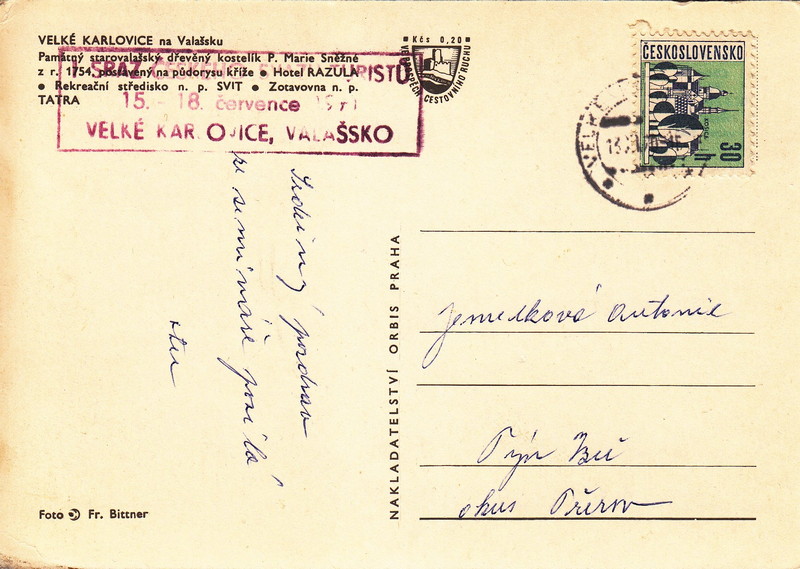 VELKÉ KARLOVICE na Valašsku
Památný starovalašský dřevěný kostelík P. Marie Sněžné
z r. 1754, postavený na půdorysu kříže ● Hotel RAZULA
● Rekreační středisko n. p. SVIT ● Zotavovna n. p.
TATRA
I. SRAZ TURISTŮ
15. - 18. července
VELKÉ KARLOVICE, VALAŠSKO
Kčs 0,20
VE PROSPĚCH CESTOVNÍHO RUCHU
ČESKOSLOVENSKO
30 h
VELKÉ
Srdečný pozdrav
ze semináře posílá
NAKLADATELSTVÍ ORBIS PRAHA
Jemelková Antonie
Týn
okres Přerov
Foto Fr. Bittner